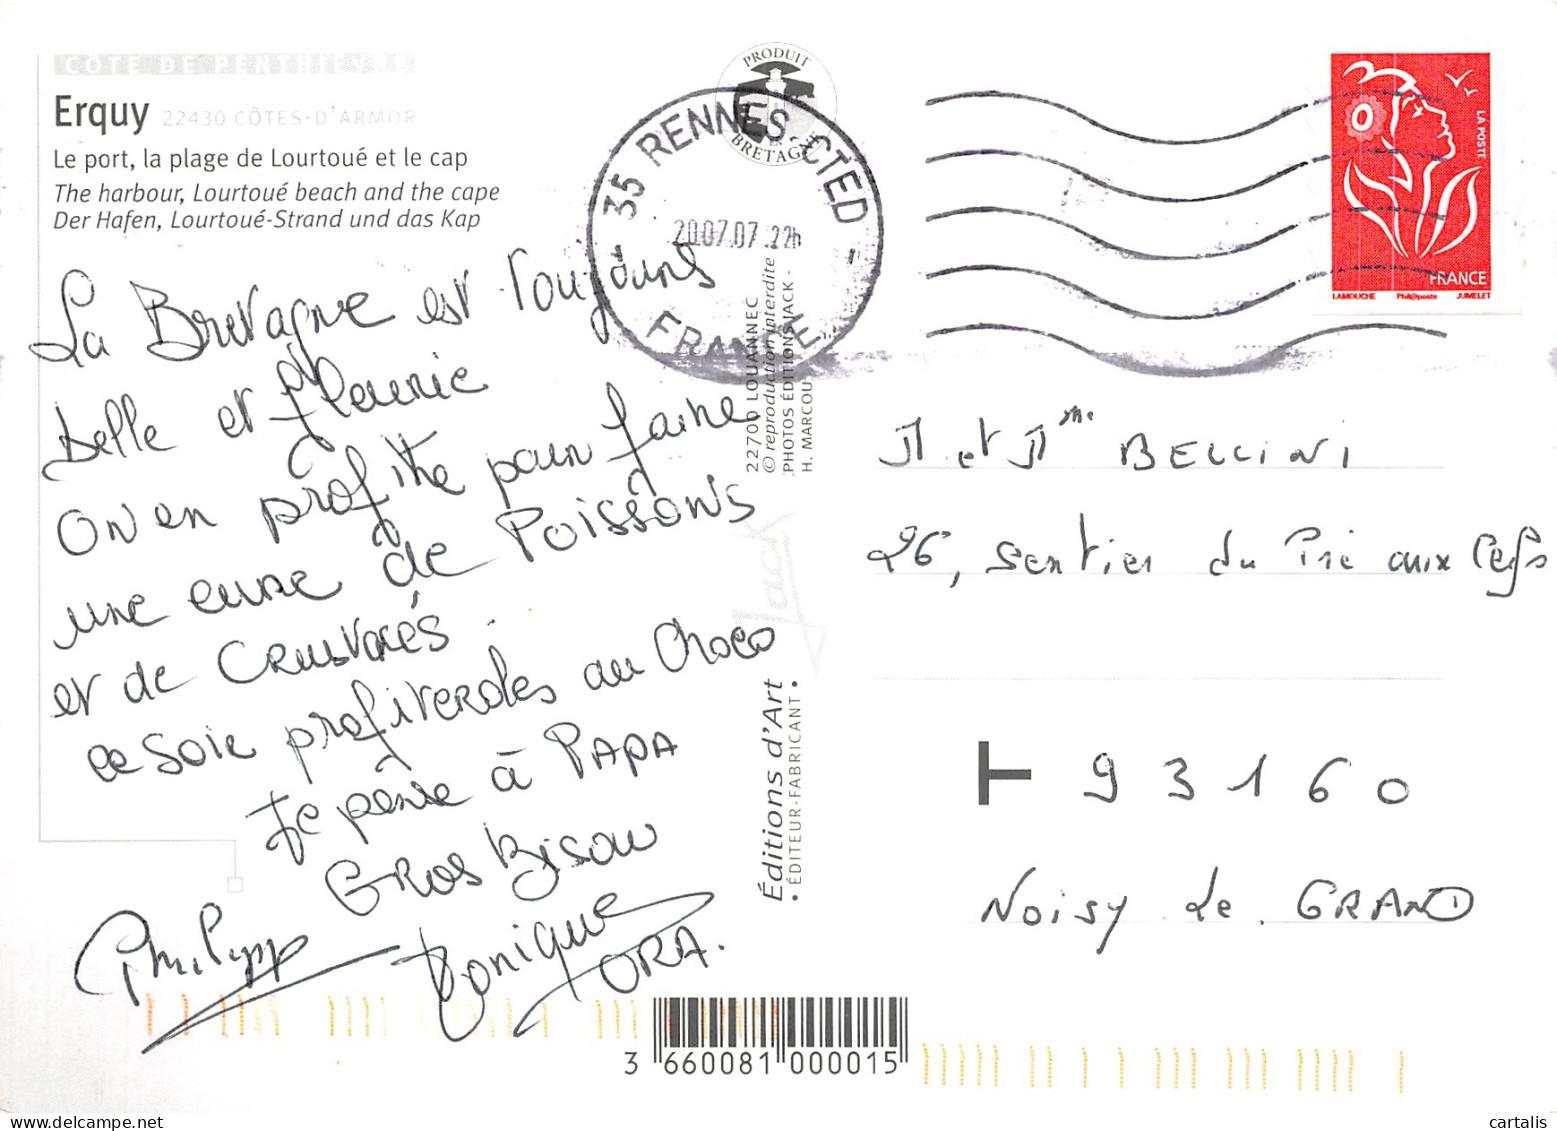 CÔTE DE PENTHIÈVRE
Erquy 22430 CÔTES-D'ARMOR
Le port, la plage de Lourtoué et le cap
The harbour, Lourtoué beach and the cape
Der Hafen, Lourtoué-Strand und das Kap
La Bretagne est toujours
belle et fleurie
On en profite pour faire
une cure de Poissons
et de Crustacés.
ce soir profiteroles au Choco
Je pense à PAPA
Gros Bisou
Philipp
Monique
ORA.
PRODUIT
EN
BRETAGNE
35 RENNES CTED
20.07.07.22h
FRANCE
22700 LOUANNEC
© reproduction interdite
PHOTOS ÉDITIONS JACK -
H. MARCOU
Jack
Éditions d'Art
• ÉDITEUR-FABRICANT •
LA POSTE
FRANCE
LAMOUCHE Phil@poste JUMELET
M et Mme BELLINI
26, Sentier du Pré aux
T 93160
NOISY Le GRAND
3 660081 000015
© cartalis